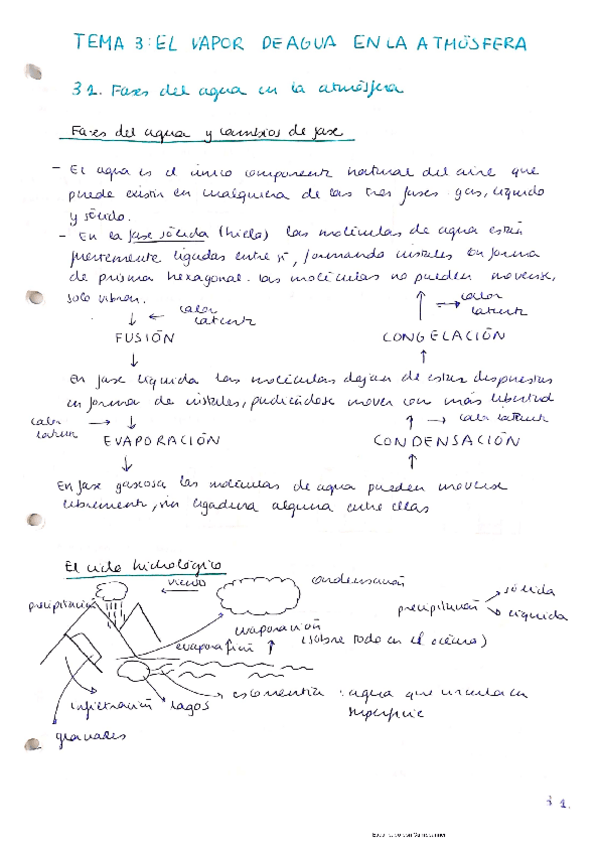 TEMA 3: EL VAPOR DE AGUA EN LA ATMÓSFERA
3.1. Fases del agua en la atmósfera
Fases del agua y cambios de fase
- El agua es el único componente natural del aire que
puede existir en cualquiera de las tres fases: gas, líquido
y sólido.
- En la fase sólida (hielo) las moléculas de agua están
fuertemente ligadas entre sí, formando cristales en forma
de prisma hexagonal. Las moléculas no pueden moverse,
solo vibran.
↓ ← calor latente
↑ → calor latente
FUSIÓN CONGELACIÓN
↓ ↑
En fase líquida las moléculas dejan de estar dispuestas
en forma de cristales, pudiéndose mover con más libertad
calor latente → ↓
↑ → calor latente
EVAPORACIÓN CONDENSACIÓN
↓ ↑
En fase gaseosa las moléculas de agua pueden moverse
libremente, sin ligadura alguna entre ellas
El ciclo hidrológico
viento
condensación
precipitación
precipitación sólida
líquida
evaporación
(sobre todo en el océano)
escorrentía: agua que circula en
superficie
infiltración lagos
glaciares
3 1.